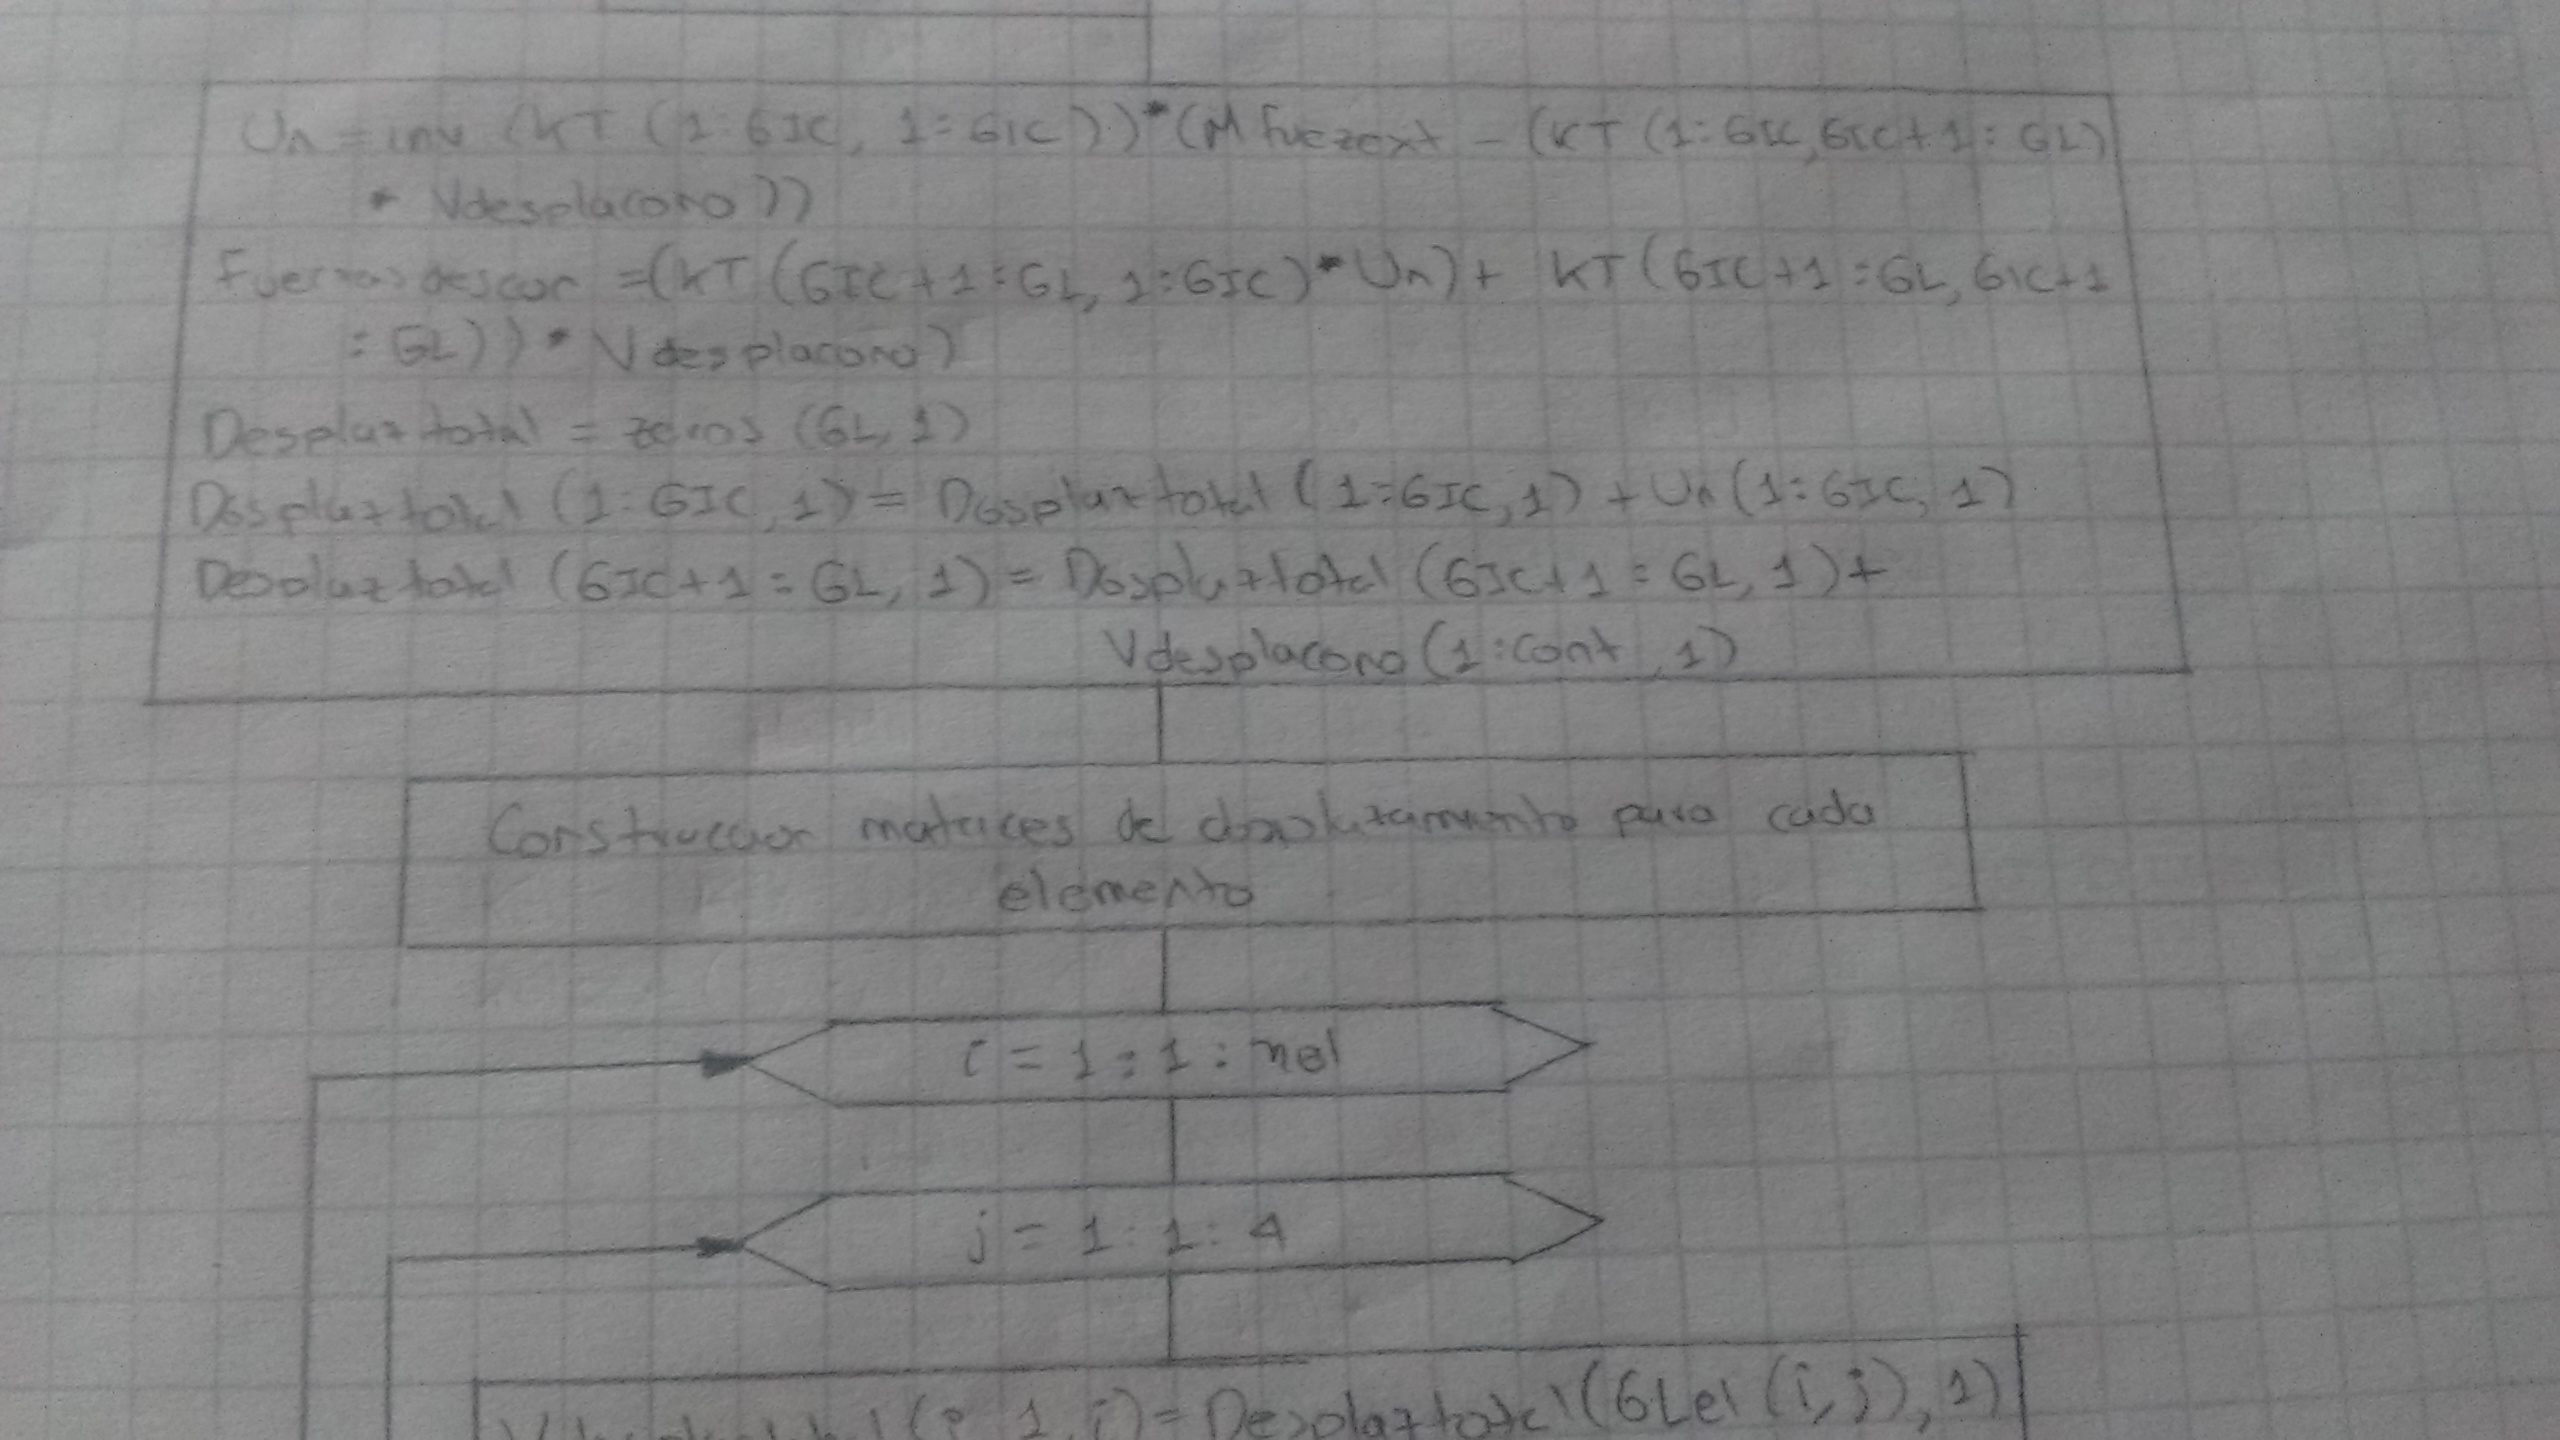 Un = inv (KT (1:GIC, 1:GIC))*(Mfuezext - (KT (1:GIC,GIC+1:GL)
* Vdesplacono))
Fuerzasdescon =(KT (GIC+1:GL, 1:GIC)*Un)+ KT(GIC+1:GL, GIC+1
:GL))*Vdesplacono)
Desplaztotal = zeros (GL, 1)
Desplaztotal (1:GIC, 1) = Desplaztotal (1:GIC, 1) + Un (1:GIC, 1)
Desplaztotal (GIC+1:GL, 1) = Desplaztotal (GIC+1:GL, 1)+
Vdesplacono (1:cont, 1)
Construccion matrices de desplazamiento para cada
elemento
i = 1:1:nel
j = 1:1:4
(:,1,i)= Desplaztotal (GLel (i,j), 1)